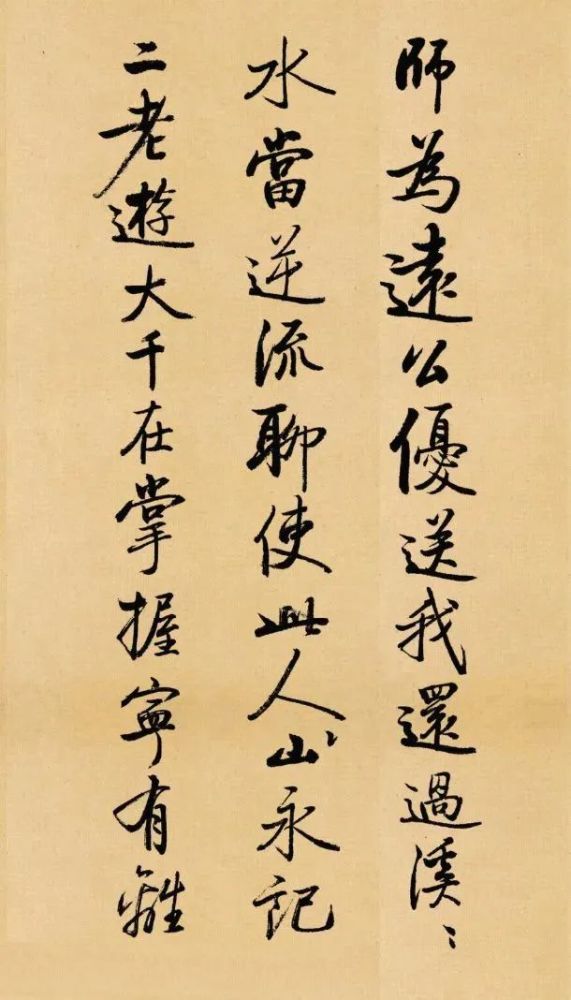 師為遠公優送我還過溪〻
水當逆流聊使此人山永記
二老遊大千在掌握寧有離